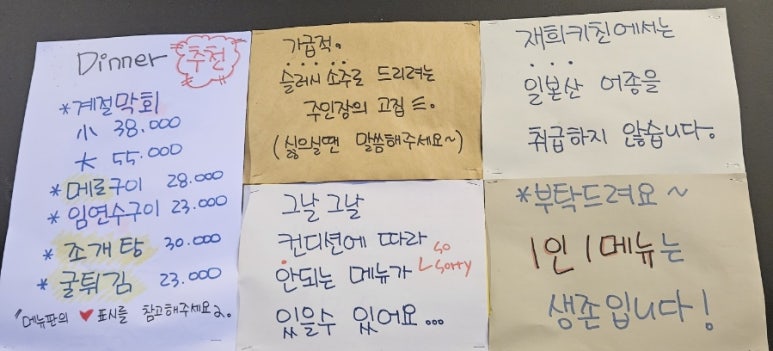 Dinner 추천
*계절막회
小 38.000
大 55.000
*메로구이 28.000
*임연수구이 23.000
*조개탕 30.000
*굴튀김 23.000
메뉴판의 ♥ 표시를 참고해주세요.
가급적.
슬러시 소주로 드리려는
주인장의 고집 ㅌ.
(싫으실땐 말씀해주세요~)
재희키친에서는
일본산 어종을
취급하지 않습니다.
그날 그날
컨디션에 따라
안되는 메뉴가 so sorry
있을수 있어요...
*부탁드려요~
1인 1메뉴는
생존입니다!